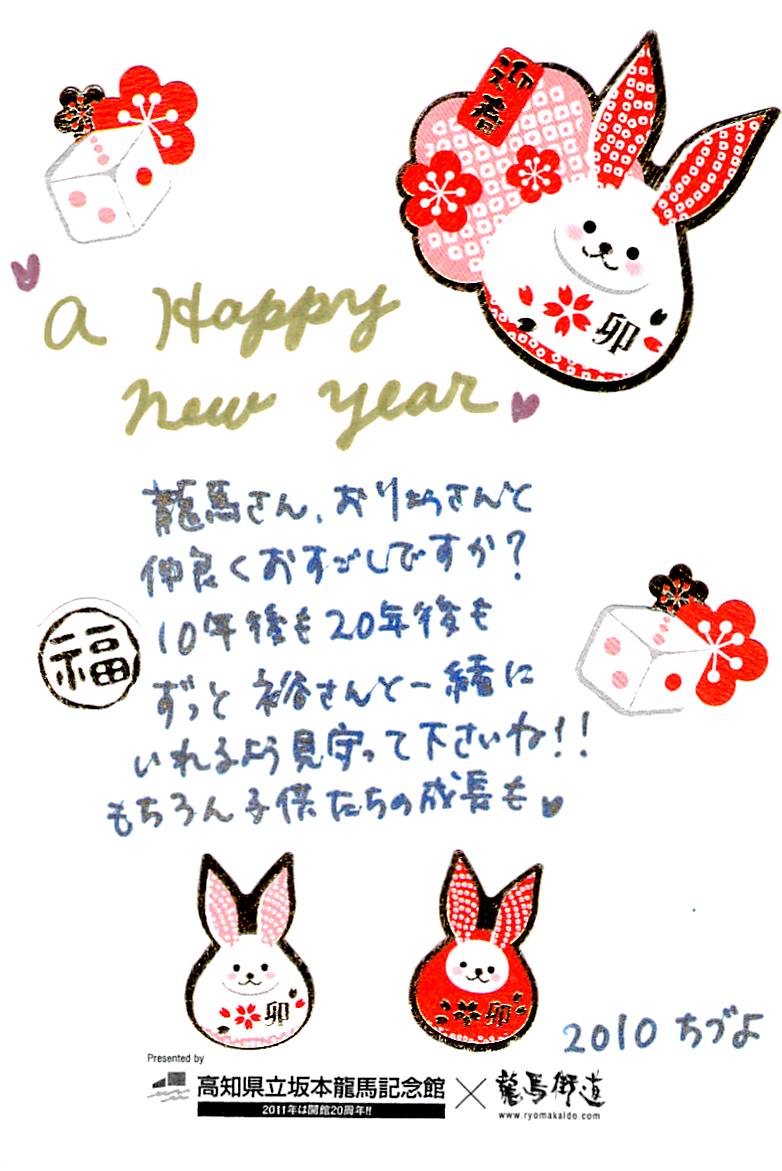 迎春
卯
a Happy
new year
龍馬さん、おりょうさんと
仲良くおすごしですか？
10年後も20年後も
ずっと裕さんと一緒に
いれるよう見守って下さいね！！
もちろん子供たちの成長も
福
卯
卯
2010 ちづよ
Presented by
高知県立坂本龍馬記念館
2011年は開館20周年!!
×
龍馬街道
www.ryomakaido.com